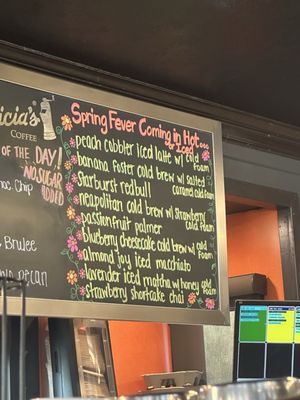 icia's
COFFEE
OF THE DAY!
NO SUGAR
ADDED
Mac. Chip
Brulee
pecan
Spring Fever Coming in Hot...
& Iced
peach cobbler iced latte w/ cold
foam
banana foster cold brew w/ salted
caramel cold foam
starburst redbull
neapolitan cold brew w/ strawberry
cold foam
passionfruit palmer
blueberry cheesecake cold brew w/ cold
foam
almond joy iced macchiato
lavender iced matcha w/ honey cold
foam
strawberry shortcake chai